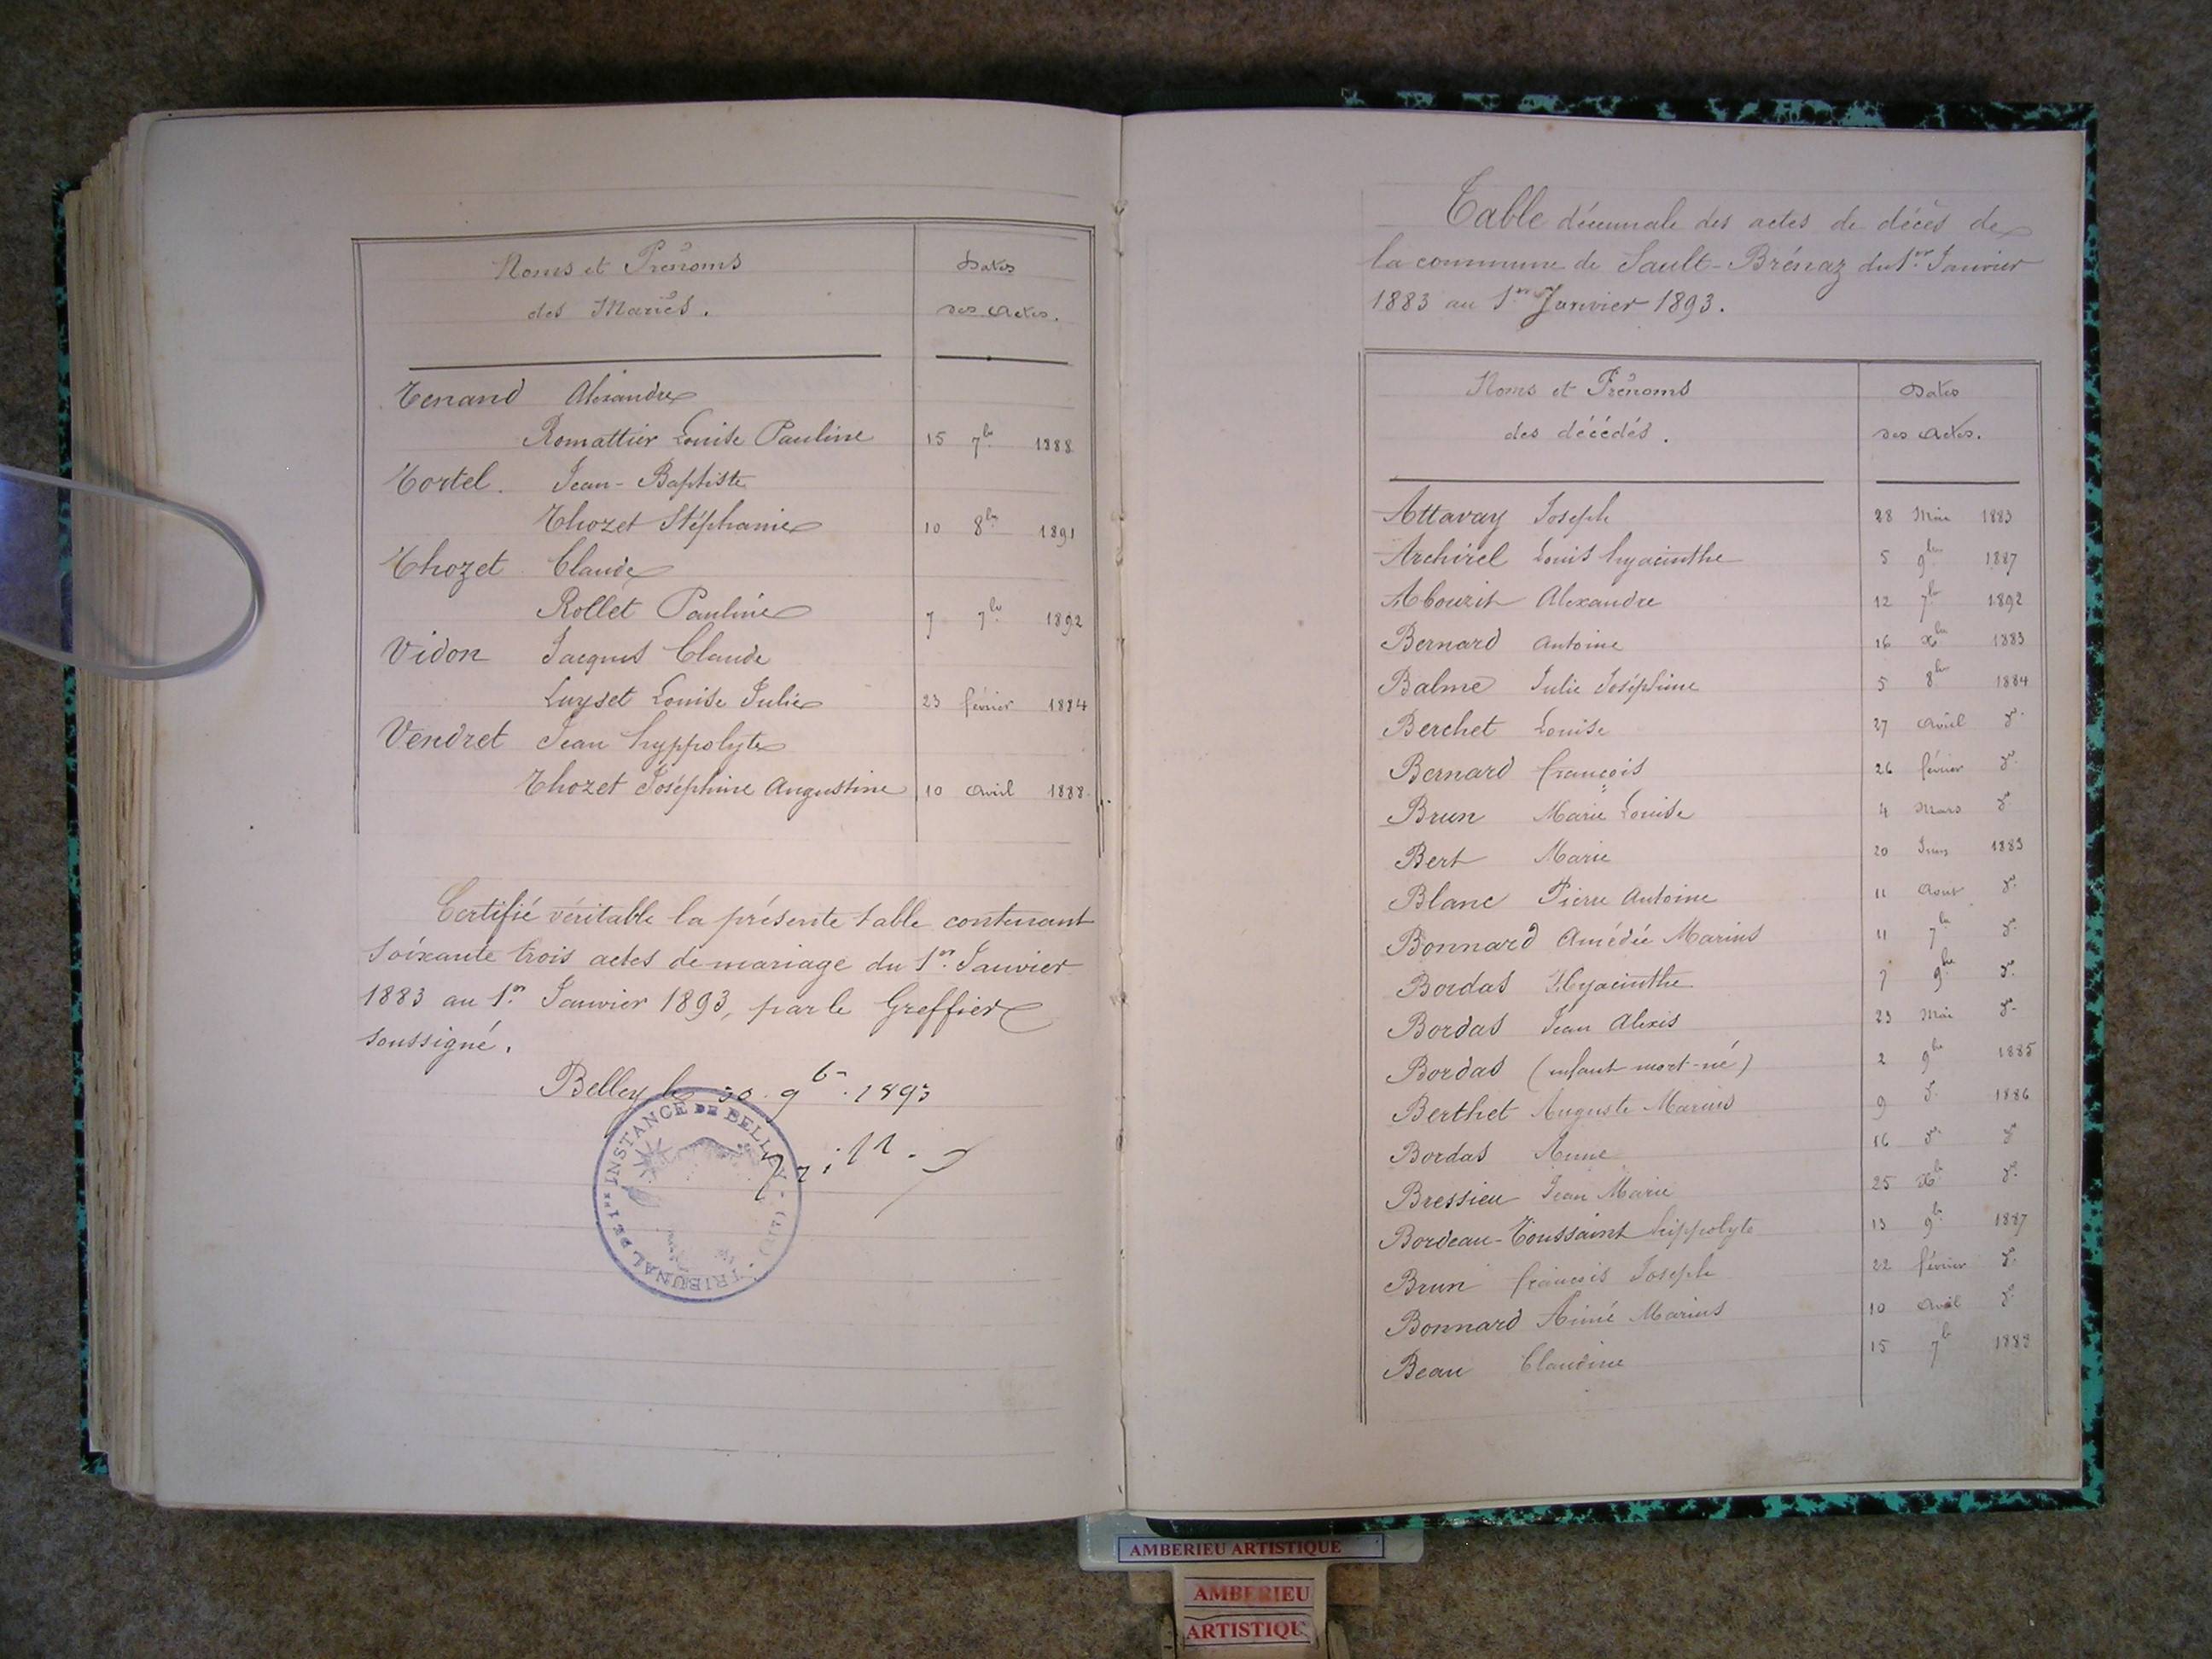 Noms et Prénoms
des Mariés.
Dates
des Actes.
Tenand Alexandre
Romattier Louise Pauline 15 7bre 1888
Tortel. Jean-Baptiste
Thozet Stéphanie 10 8bre 1891
Thozet Claude
Rollet Pauline 7 7bre 1892
Vidon Jacques Claude
Luyset Louise Julie 23 février 1884
Vendret Jean hyppolyte
Thozet Joséphine Augustine 10 Avril 1888.
Certifié véritable la présente table contenant
soixante trois actes de mariage du 1er Janvier
1883 au 1er Janvier 1893, par le Greffier
soussigné.
Belley le 30 9bre 1893
TRIBUNAL DE 1re INSTANCE DE BELLEY - (AIN)
Table décennale des actes de décès de
la commune de Sault-Brénaz du 1er Janvier
1883 au 1er Janvier 1893.
Noms et Prénoms
des décédés.
Dates
des Actes.
Attavay Joseph 28 Mai 1883
Archirel Louis hyacinthe 5 9bre 1887
Abouzit Alexandre 12 7bre 1892
Bernard Antoine 16 Xbre 1883
Balme Julie Joséphine 5 8bre 1884
Berchet Louise 27 Avril do
Bernard françois 26 février do
Brun Marie Louise 4 Mars do
Bert Marie 20 Juin 1885
Blanc Pierre Antoine 11 Aout do
Bonnard Amédée Marius 11 7bre do
Bordas Hyacinthe 7 9bre do
Bordas Jean Alexis 23 Mai do
Bordas (enfant mort-né) 2 9bre 1885
Berthet Auguste Marius 9 do 1886
Bordas Anne 16 do do
Bressieu Jean Marie 25 Xbre do
Bordeau-Toussaint hippolyte 13 9bre 1887
Brun françois Joseph 22 février do
Bonnard Aimé Marius 10 Avril do
Beau Claudine 15 7bre 1888
AMBERIEU ARTISTIQUE
AMBERIEU
ARTISTIQU